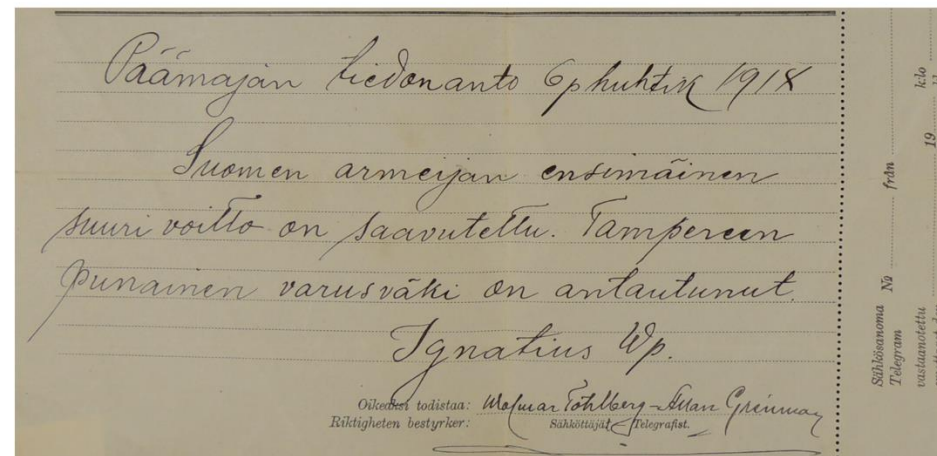 Päämajan tiedonanto 6 p huhtik 1918
Suomen armeijan ensimäinen
suuri voitto on saavutettu. Tampereen
punainen varusväki on antautunut.
Ignatius Wp.
Oikeaksi todistaa:
Riktigheten bestyrker:
Sähköttäjät, Telegrafist.
Sähkösanoma
Telegram
№ från
vastaanotettu
19
klo